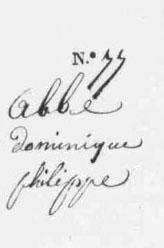 N.º 77
abbé
dominique
philippe